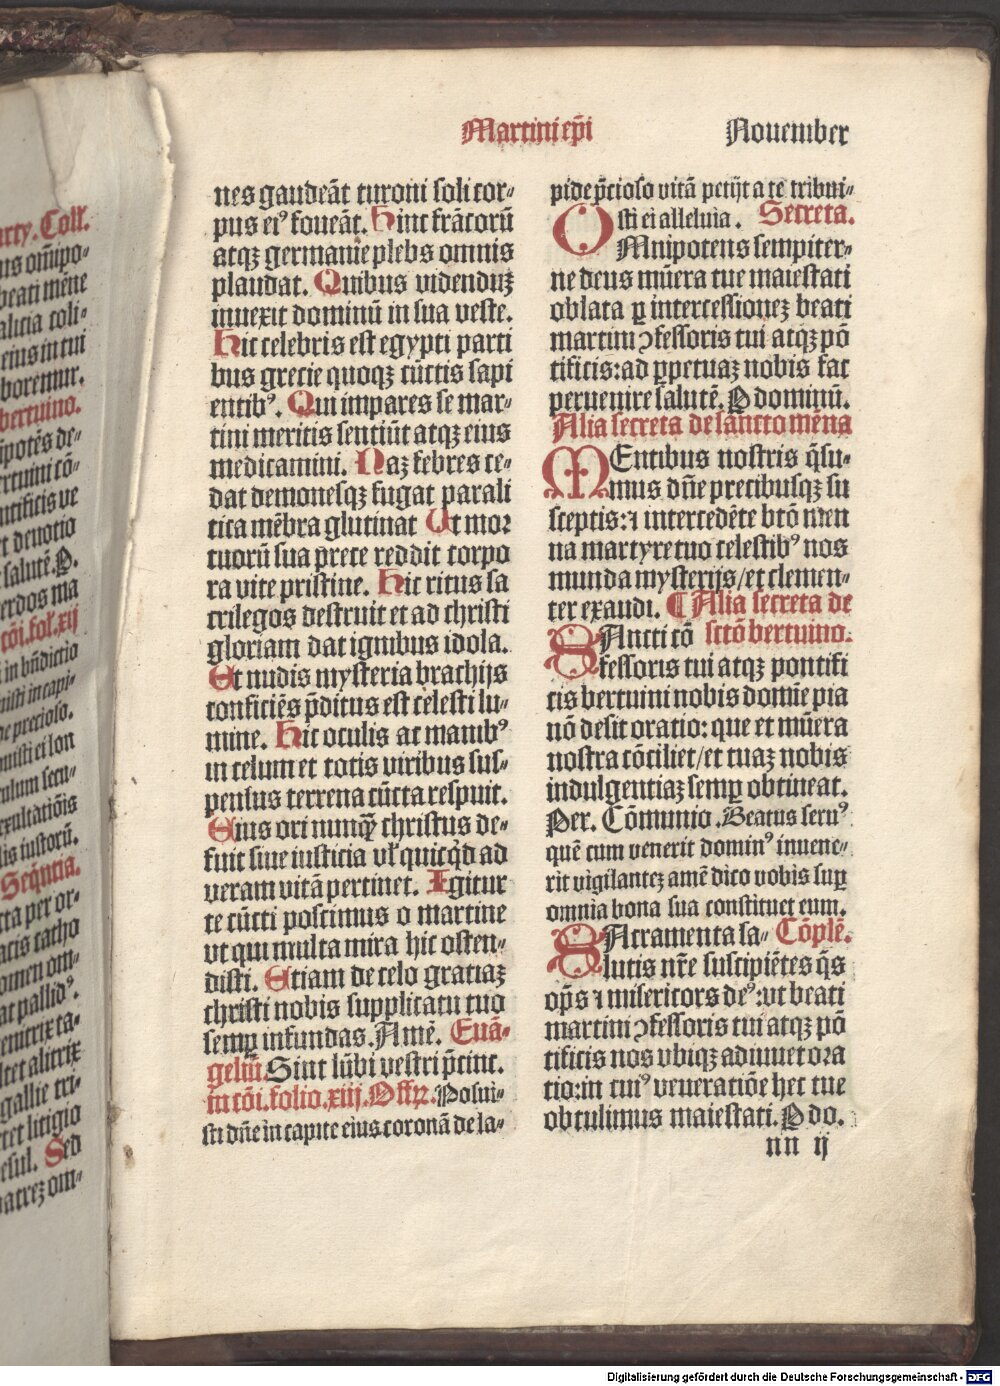 Martini ep̃i
Nouember
nes gaudeāt turoni soli cor⸗
pus ei⁹ foueāt. Hinc frācorū
atqꝫ germanie plebs omnis
plaudat. Quibus videnduꝫ
inuexit dominū in sua veste.
Hic celebris est egypti parti
bus grecie quoqꝫ cūctis sapi
entib⁹. Qui impares se mar⸗
tini meritis sentiūt atqꝫ eius
medicamini. Naꝫ febres ce⸗
dat demonesqꝫ fugat parali
tica mēbra glutinat Ut mor
tuorū sua prece reddit corpo
ra vite pristine. Hic ritus sa
crilegos destruit et ad christi
gloriam dat ignibus idola.
Et nudis mysteria brachijs
conficiēs p̄ditus est celesti lu⸗
mine. Hic oculis ac manib⁹
in celum et totis viribus sus⸗
pensus terrena cūcta respuit.
Eius ori nunqꝫ̃ christus de⸗
fuit siue iusticia vł quicq̇d ad
veram vitā pertinet. Igitur
te cūcti poscimus o martine
vt qui multa mira hic osten⸗
disti. Etiam de celo gratiaꝫ
christi nobis supplicatu tuo
semꝑ infundas. Amē. Euā⸗
geliū. Sint lūbi vestri p̄cinc.
in cōi. folio. xiij. Offꝝ. Posui⸗
sti dn̄e in capite eius coronā de la⸗
pide p̄cioso vitā petijt a te tribui⸗
sti ei alleluia. Secreta.
OMnipotens sempiter⸗
ne deus mūera tue maiestati
oblata ꝑ intercessioneꝫ beati
martini ↄfessoris tui atqꝫ pō
tificis: ad ꝑpetuaꝫ nobis fac
peruenire salutē. P dominū.
Alia secreta de sancto mēna
MEntibus nostris q̄su⸗
mus dn̄e precibusqꝫ su
sceptis: ⁊ intercedēte btō men
na martyre tuo celestib⁹ nos
munda mysterijs/ et clemen⸗
ter exaudi. ¶ Alia secreta de
SAncti cō sctō bertuino.
fessoris tui atqꝫ pontifi
cis bertuini nobis domīe pia
nō desit oratio: que et mūera
nostra cōciliet/ et tuaꝫ nobis
indulgentiaꝫ semꝑ obtineat.
Per. Cōmunio. Beatus seru⁹
quē cum venerit domin⁹ inuene⸗
rit vigilanteꝫ amē dico vobis suꝑ
omnia bona sua constituet eum.
SAcramenta sa⸗ Cōplē.
lutis nr̄e suscipiētes q̄s
op̄s ⁊ misericors de⁹: vt beati
martini ↄfessoris tui atqꝫ pō
tificis nos vbiqꝫ adiuuet ora
tio: in cui⁹ veneratiōe hec tue
obtulimus maiestati. P do.
nn ij
Digitalisierung gefördert durch die Deutsche Forschungsgemeinschaft - DFG